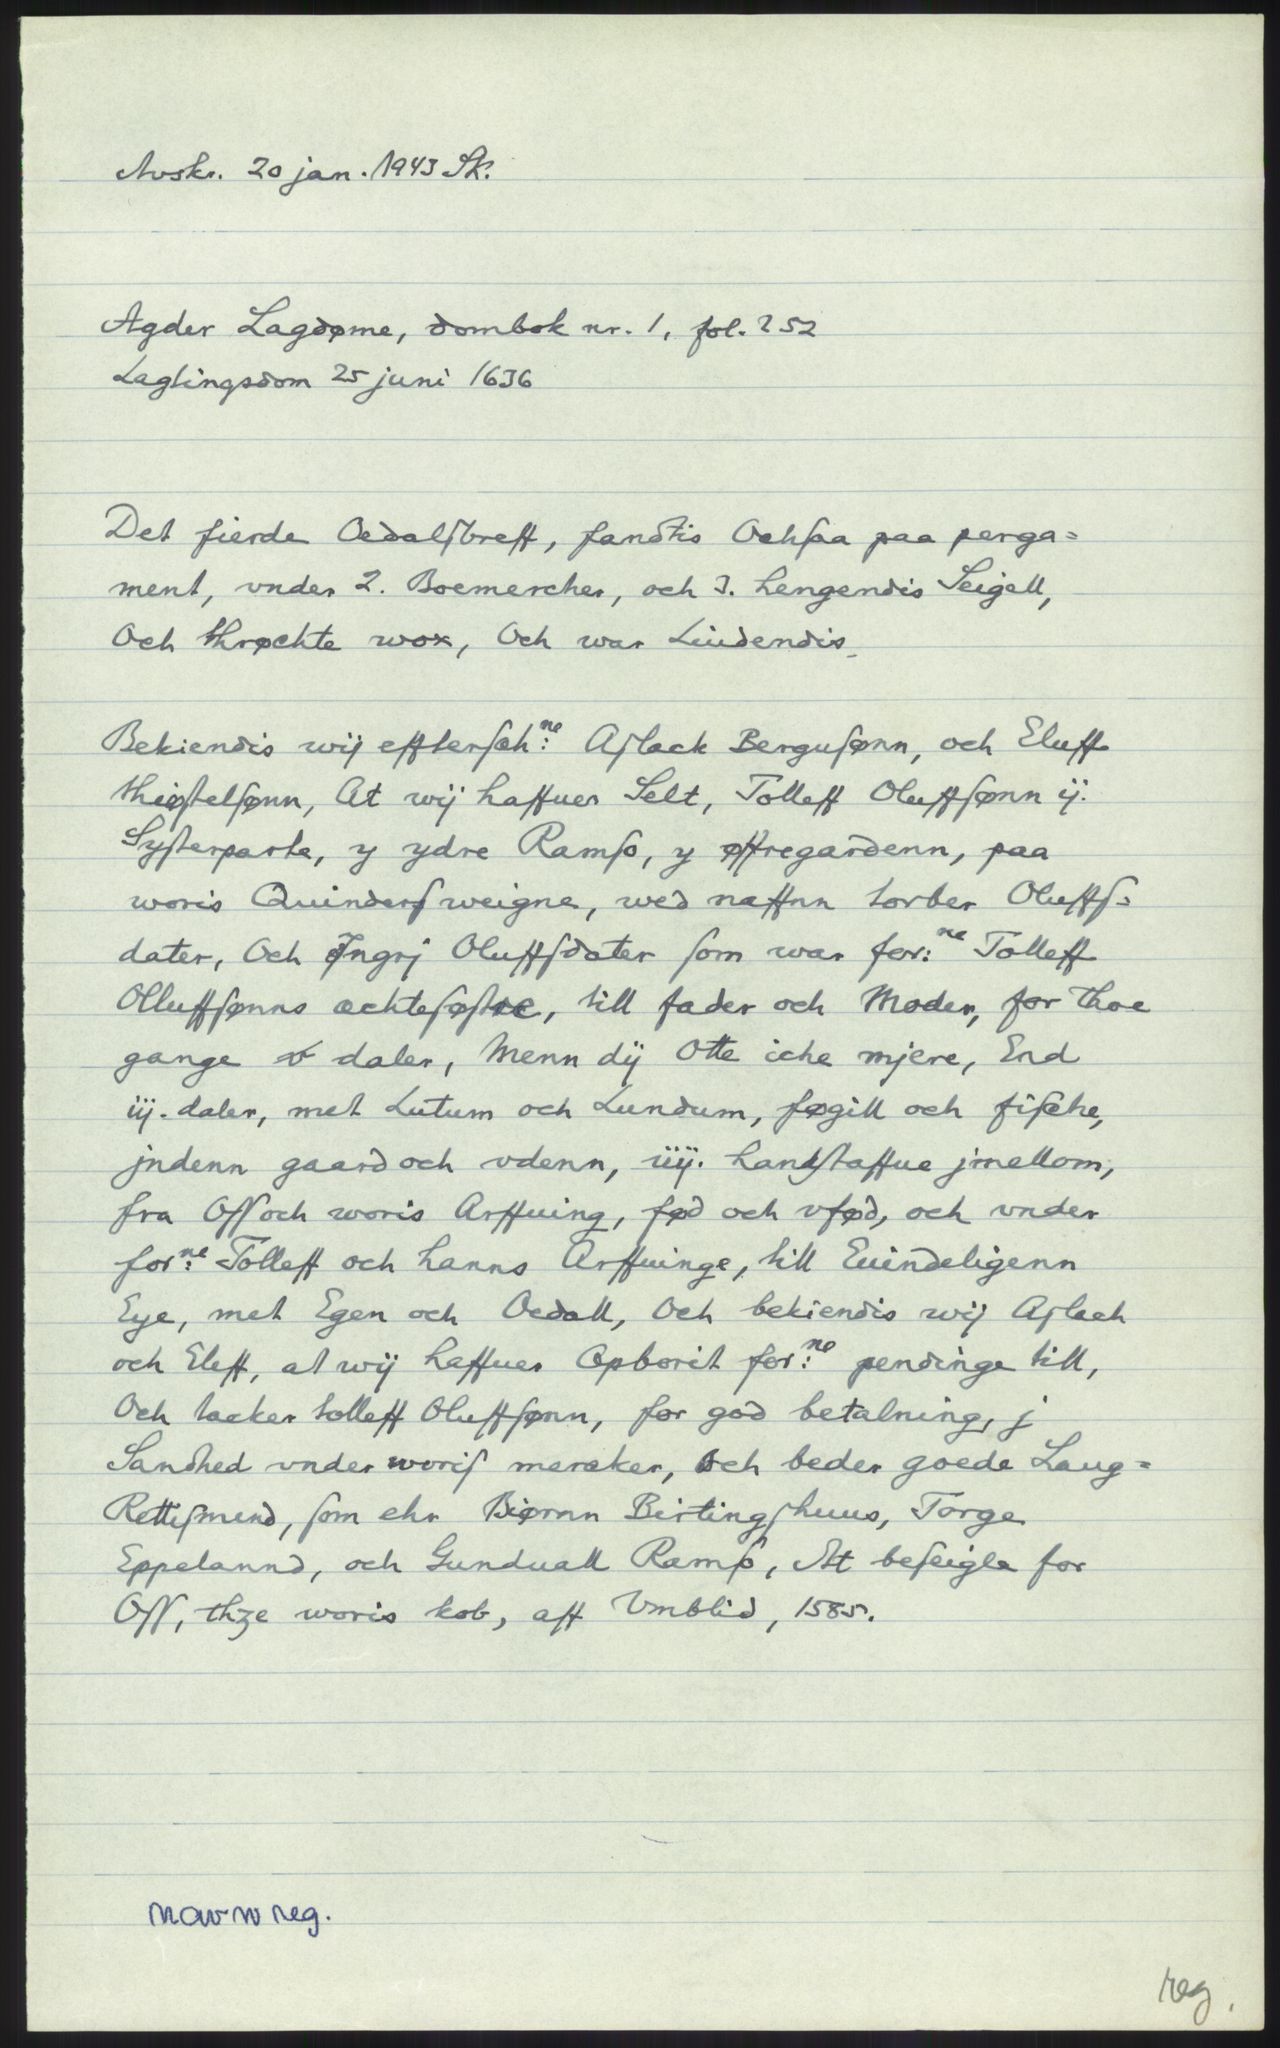 Avskr. 20 jan. 1943 Sk.
Agder Lagdøme, dombok nr. 1, fol. 252
Lagtingsdom 25 juni 1636
Det fierde Oedalſbreff, fandtis Ochſaa paa perga=
ment, vnder 2. Boemercher, och 3. hengendis Seigell,
Och thrøchte wox, Och war Liudendis
Bekiendis wij effterſch:ne Aſlack Berguſønn, och Eluff
thiøſtelſønn, At wij haffuer Selt, Tolleff Oluffſønn ij.
Syſterparte, y ydre Ramſo, y øffregardenn, paa
woris Quinderſ weigne, wed naffnn torber Oluffſ=
dater, Och Jngrj Oluffſdater ſom war for:ne Tolleff
Olluffſønns echteſøſtre, till fader och Moder, for thoe
gange v daler, Menn dij Otte iche mjere, End
iij. daler, met Lutum och Lundum, føgill och fiſche,
jndenn gaard och vdenn, iiij. handſtaffue jmellom,
fra Oſſ och woris Arffuing, fød och vfød, och vnder
for:ne Tolleff och hanns Arffuinge, till Euindeligenn
Eye, met Egen och Oedall, Och bekiendis wij Aſlach
och Eleff, at wij haffuer Opborit for:ne pendinge till,
Och tacker tolleff Oluffſønn, for god betalning, j
Sandhed vnder woriſ mercker, Och beder goede Laug=
Rettiſmend, ſom ehr Biørnn Birtingſhuus, Torge
Eppelannd, och Gunduall Ramſo, At beſeigle for
Oſſ, thʒe woris kob, aff Vmblid, 1585.
NAVN reg.
reg.